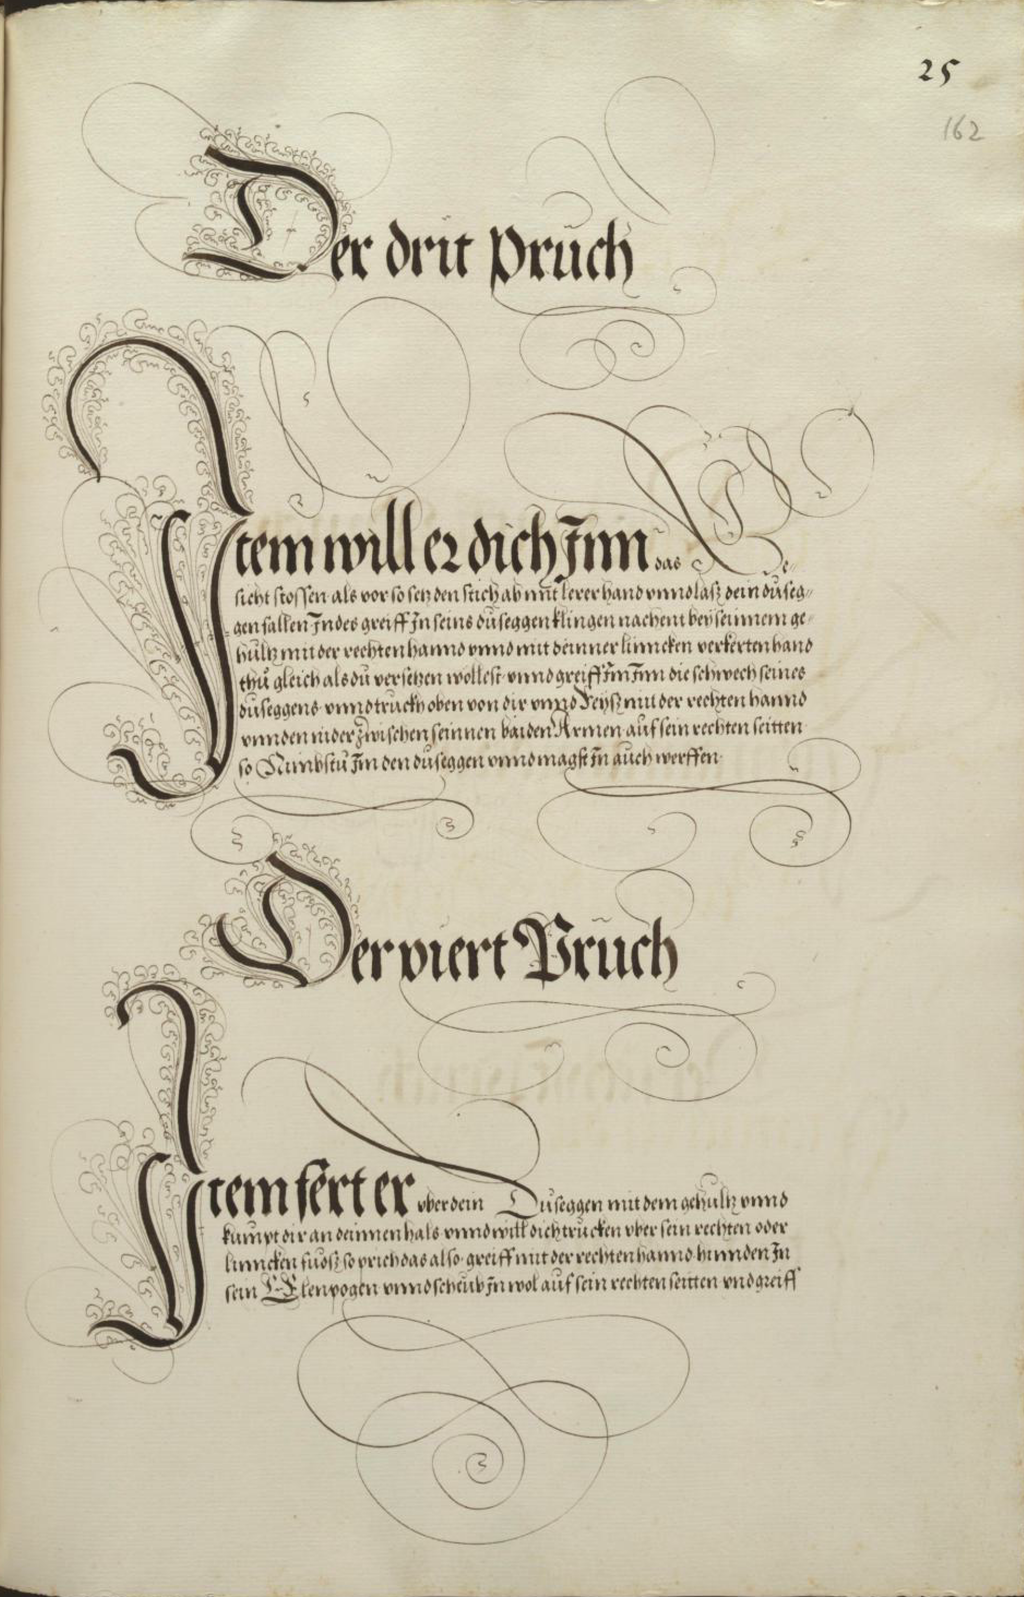 25
162
Der drit Pruch
Item will er dich Inn das Ge-
sicht stossen als vor so setz den stich ab mit lerer hand vnnd lasz dein duseg-
gen fallen Indes greiff In seins duseggen klingen nachent bey seinnem ge-
hultz mit der rechten hannd vnnd mit deinner linncken verkerten hand
thu gleich als du versetzen wollest vnnd greiff Im Inn die schwech seines
duseggens vnnd truckh oben von dir vnnd Reysz mit der rechten hannd
vnnden nider Zwischen seinnen baiden Armen auf sein rechten seitten
so Nimbstu Im den duseggen vnnd magst In auch werffen
Der viert Pruch
Item fert er vber dein Duseggen mit dem gehultz vnnd
kumpt dir an deinnen hals vnnd will dich trucken vber sein rechten oder
linncken fuosz so prich das also greiff mit der rechten hannd hinnden In
sein Elenpogen vnnd scheub In wol auf sein rechten seitten vnd greiff